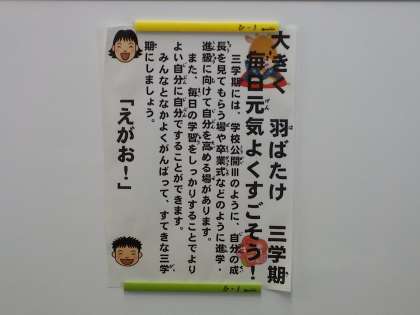 大きく　羽ばたけ　三学期
毎日元気よくすごそう！
三学期には、学校公開Ⅲのように、自分の成
長を見てもらう場や卒業式などのように進学・
進級に向けて自分を高める場があります。
また、毎日の学習をしっかりすることでより
よい自分に自分ですることができます。
みんなとなかよくがんばって、すてきな三学
期にしましょう。
「えがお！」
6-1
6-1